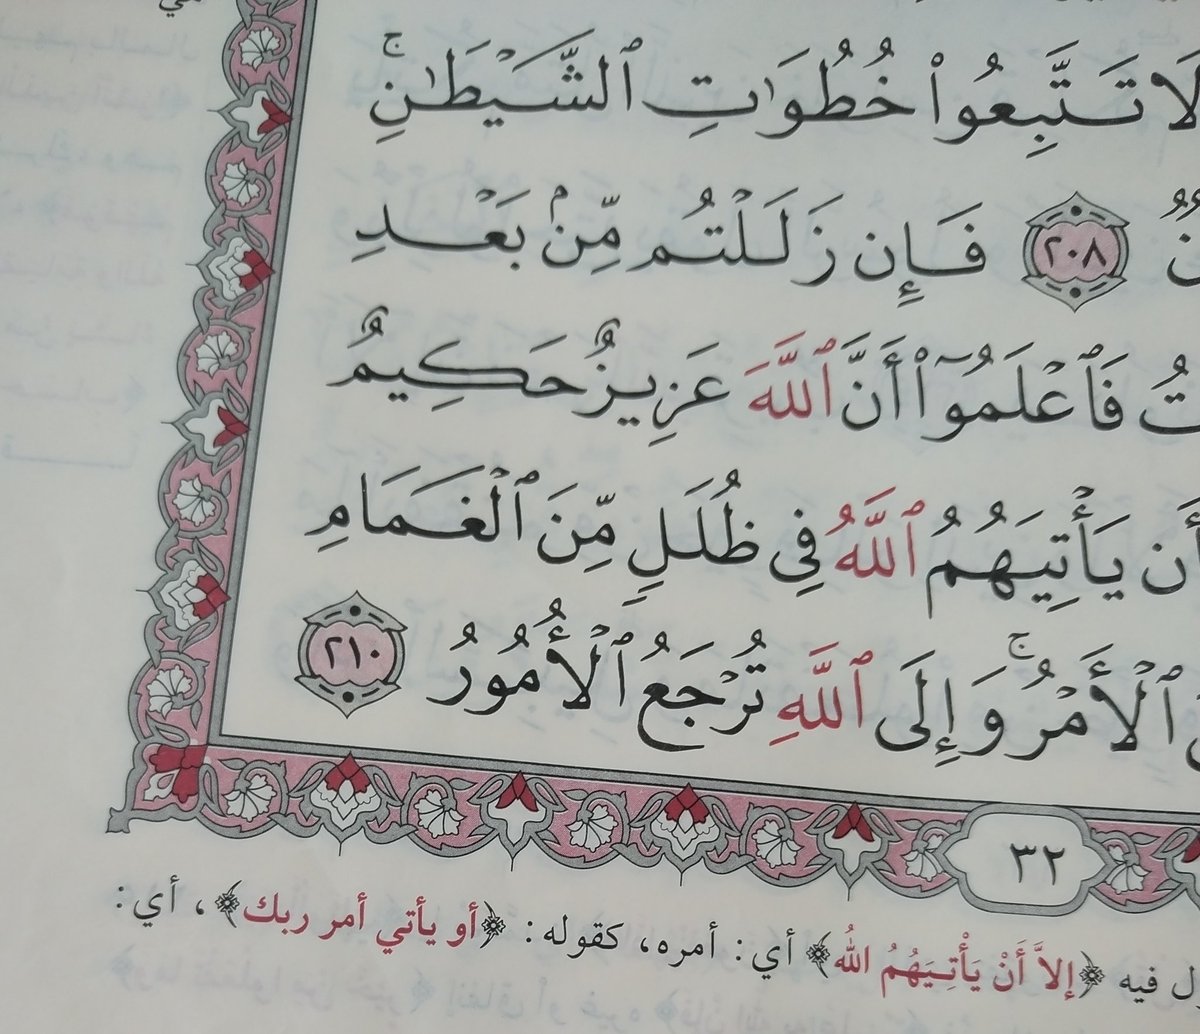 لَا تَتَّبِعُوا۟ خُطُوَٰتِ ٱلشَّيْطَـٰنِ ۚ
٢٠٨ فَإِن زَلَلْتُم مِّنۢ بَعْدِ
فَٱعْلَمُوٓا۟ أَنَّ ٱللَّهَ عَزِيزٌ حَكِيمٌ
أَن يَأْتِيَهُمُ ٱللَّهُ فِى ظُلَلٍ مِّنَ ٱلْغَمَامِ
ٱلْأَمْرُ ۚ وَإِلَى ٱللَّهِ تُرْجَعُ ٱلْأُمُورُ ٢١٠
٣٢
فيه ﴿إلاَّ أَنْ يَأْتِيَهُمُ اللهُ﴾ أي: أمره، كقوله: ﴿أو يأتي أمر ربك﴾، أي: